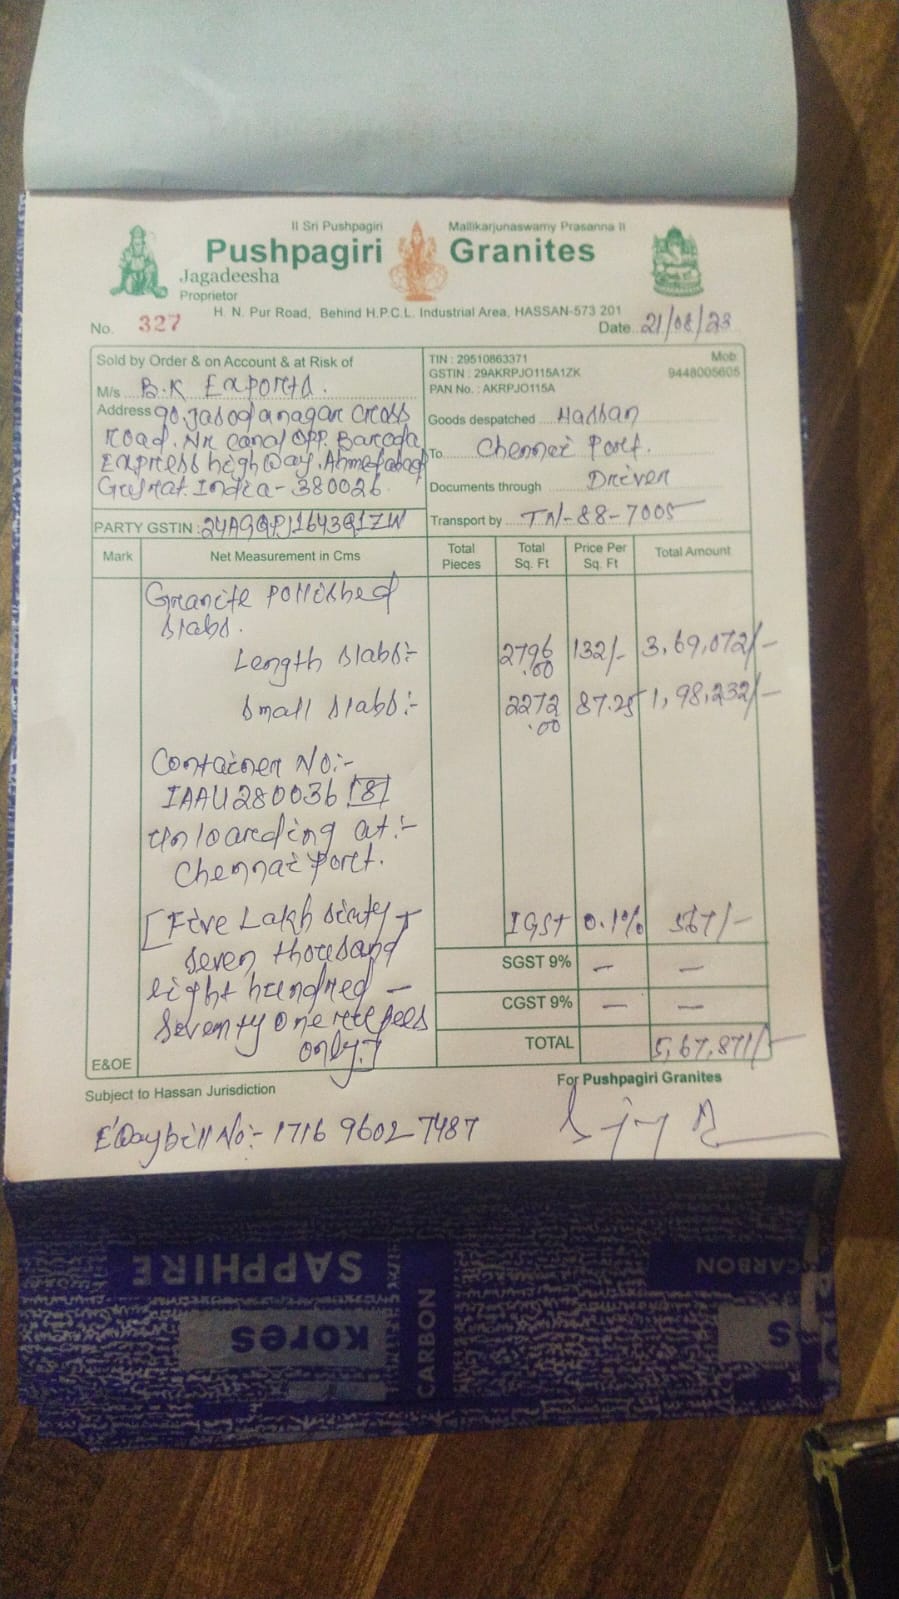 II Sri Pushpagiri Mallikarjunaswamy Prasanna II
Pushpagiri Granites
Jagadeesha
Proprietor
H. N. Pur Road, Behind H.P.C.L. Industrial Area, HASSAN-573 201
No. 327 Date 21/08/23
Sold by Order & on Account & at Risk of
M/s B.K Exports.
Address 90, Jasodanagar Cross
Road. Nr canal Opp. Baroda
Express high Way, Ahmedabad
Gujrat. India - 380026.
PARTY GSTIN : 24AGQPJ1643Q1ZW
TIN : 29510863371 Mob:
GSTIN : 29AKRPJO115A1ZK 9448005605
PAN No. : AKRPJO115A
Goods despatched Hassan
To Chennai Port.
Documents through Driver
Transport by TN-88-7005
Mark Net Measurement in Cms Total Pieces Total Sq. Ft Price Per Sq. Ft Total Amount
Granite Pollished
Slabs.
Length Slabs:- 2796.00 132/- 3,69,072/-
Small Slabs:- 2272.00 87.25 1,98,232/-
Container No:-
IAAU280036 [8]
Unloarding at:-
Chennai Port.
[Five Lakh sixty - IGST 0.1% 567/-
seven thousand
eight hundred - SGST 9% — —
Seventy one rupees CGST 9% — —
only.] TOTAL 5,67,871/-
E&OE
Subject to Hassan Jurisdiction For Pushpagiri Granites
E'Waybill No:- 1716 9602 7487
SAPPHIRE
CARBON
Kores
CARBON